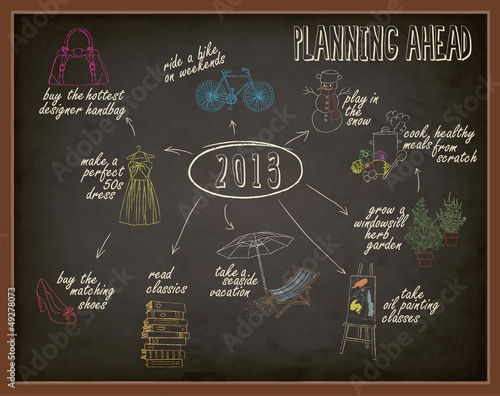 PLANNING AHEAD
ride a bike
on weekends
buy the hottest
designer handbag
play in
the
snow
cook, healthy
meals from
scratch
make a
perfect
50s
dress
2013
grow a
windowsill
herb
garden
buy the
matching
shoes
read
classics
take a
seaside
vacation
take
oil painting
classes
Adobe Stock | #49278073